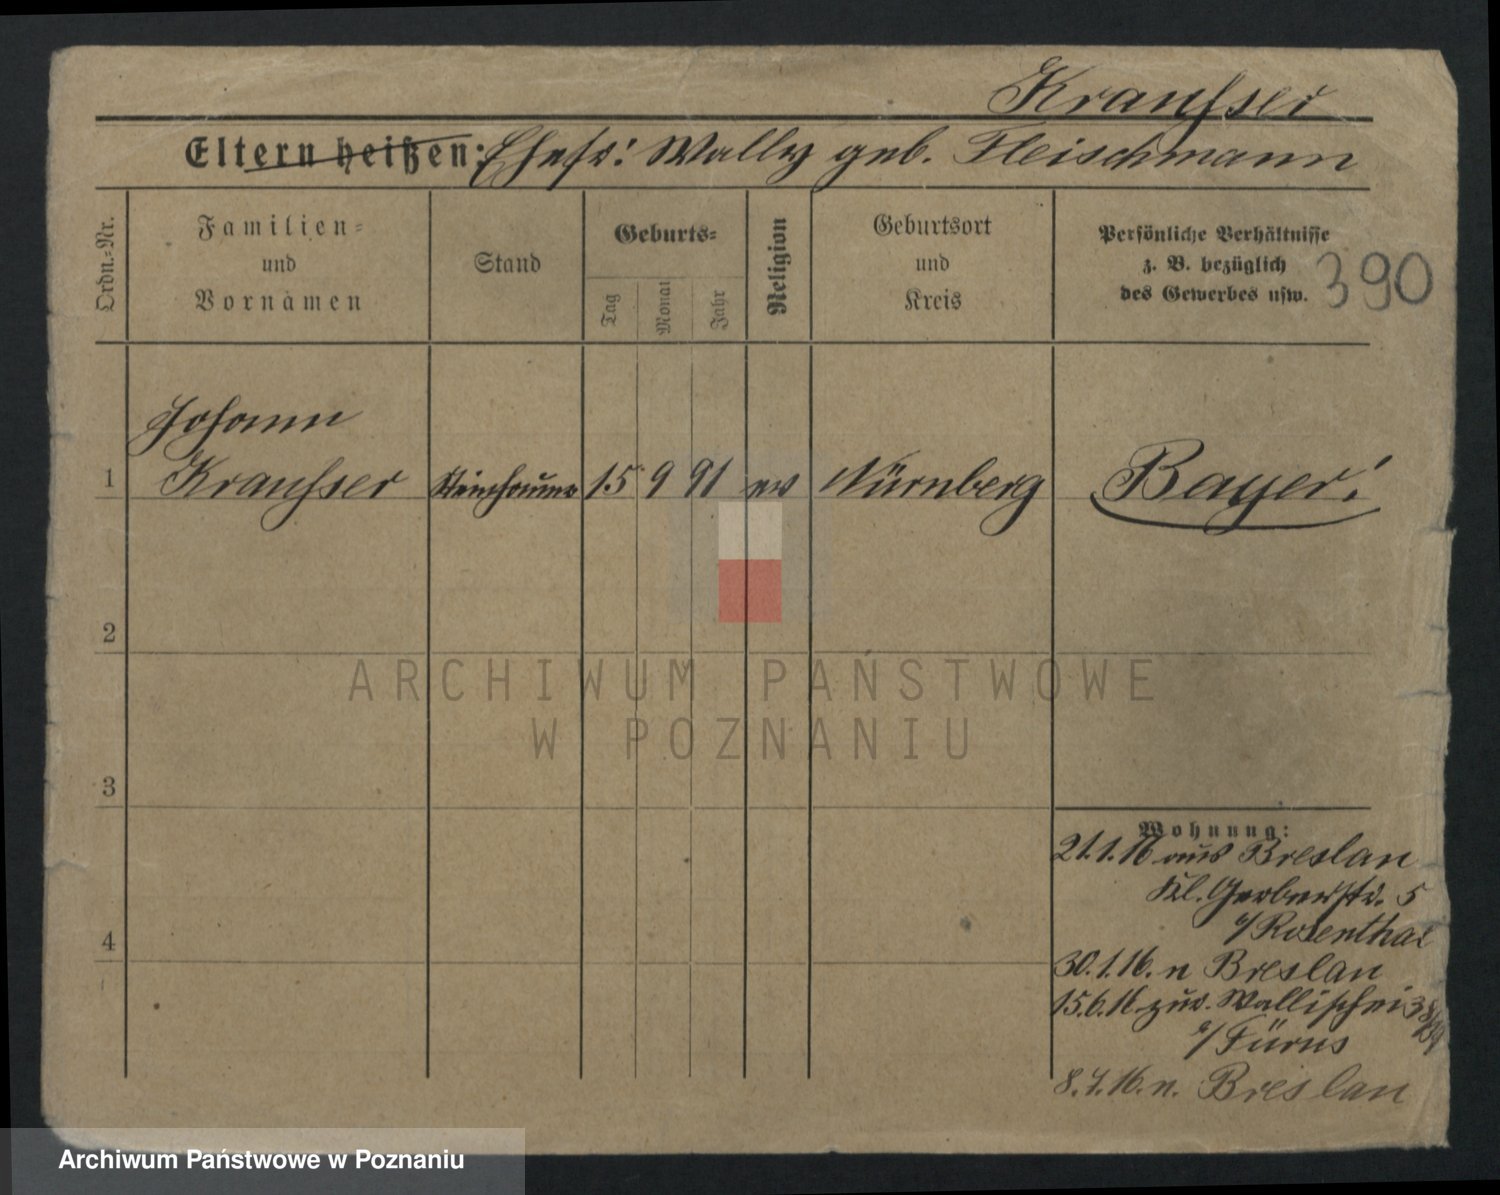 Kraußser
Eltern heißen: Ehefr: Wally geb. Fleischmann
Ordn.-Nr.
Familien-
und
Vornamen
Stand
Geburts-
Tag
Monat
Jahr
Religion
Geburtsort
und
Kreis
Persönliche Verhältnisse
z. B. bezüglich
des Gewerbes usw.
390
Johann
1 Kraußser 15 9 91 ev Nürnberg Bayer!
2
3
4
Wohnung:
21.1.16 aus Breslau
Kl. Gerberstr. 5
b/Rosenthal
30.1.16. n Breslau
15.6.16 zur. Wallischei 38/39
b/Fürus
8.7.16. n. Breslau
ARCHIWUM PAŃSTWOWE
W POZNANIU
Archiwum Państwowe w Poznaniu